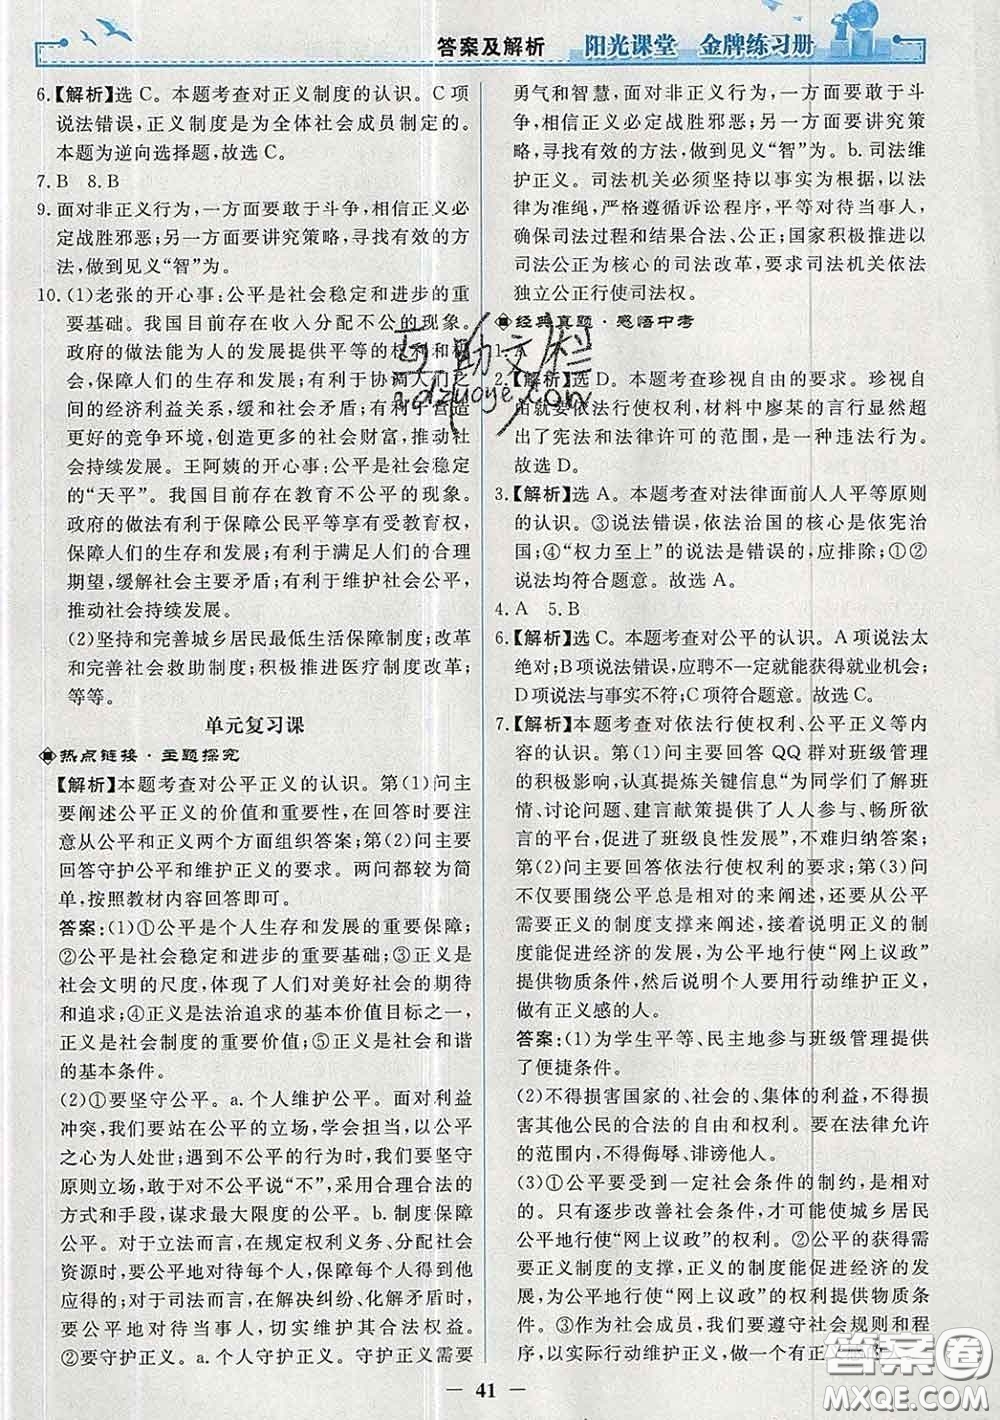 答案及解析 阳光课堂 金牌练习册
6.【解析】选 C。本题考查对正义制度的认识。C 项
说法错误,正义制度是为全体社会成员制定的。
本题为逆向选择题,故选 C。
7. B 8. B
9. 面对非正义行为,一方面要敢于斗争,相信正义必
定战胜邪恶;另一方面要讲究策略,寻找有效的方
法,做到见义“智”为。
10. (1)老张的开心事:公平是社会稳定和进步的重
要基础。我国目前存在收入分配不公的现象。
政府的做法能为人的发展提供平等的权利和机
会,保障人们的生存和发展;有利于协调人们之
间的经济利益关系,缓和社会矛盾;有利于营造
更好的竞争环境,创造更多的社会财富,推动社
会持续发展。王阿姨的开心事:公平是社会稳定
的“天平”。我国目前存在教育不公平的现象。
政府的做法有利于保障公民平等享有受教育权,
保障人们的生存和发展;有利于满足人们的合理
期望,缓解社会主要矛盾;有利于维护社会公平,
推动社会持续发展。
(2)坚持和完善城乡居民最低生活保障制度;改革
和完善社会救助制度;积极推进医疗制度改革;
等等。
单元复习课
热点链接·主题探究
【解析】本题考查对公平正义的认识。第(1)问主
要阐述公平正义的价值和重要性,在回答时要注
意从公平和正义两个方面组织答案;第(2)问主要
回答守护公平和维护正义的要求。两问都较为简
单,按照教材内容回答即可。
答案:(1)①公平是个人生存和发展的重要保障;
②公平是社会稳定和进步的重要基础;③正义是
社会文明的尺度,体现了人们对美好社会的期待
和追求;④正义是法治追求的基本价值目标之一,
正义是社会制度的重要价值;⑤正义是社会和谐
的基本条件。
(2)①要坚守公平。a. 个人维护公平。面对利益
冲突,我们要站在公平的立场,学会担当,以公平
之心为人处世;遇到不公平的行为时,我们要坚守
原则立场,敢于对不公平说“不”,采用合理合法的
方式和手段,谋求最大限度的公平。b. 制度保障
公平。对于立法而言,在规定权利义务、分配社会
资源时,要公平地对待每个人,保障每个人得其所
得;对于司法而言,在解决纠纷、化解矛盾时,
要公平地对待当事人,切实维护其合法权益。
②要守护正义。a. 个人守护正义。守护正义需要
勇气和智慧,面对非正义行为,一方面要敢于斗
争,相信正义必定战胜邪恶;另一方面要讲究策
略,寻找有效的方法,做到见义“智”为。b. 司法维
护正义。司法机关必须坚持以事实为根据,以法
律为准绳,严格遵循诉讼程序,平等对待当事人,
确保司法过程和结果合法、公正;国家积极推进以
司法公正为核心的司法改革,要求司法机关依法
独立公正行使司法权。
经典真题·感悟中考
1. A
2.【解析】选 D。本题考查珍视自由的要求。珍视自
由就要依法行使权利,材料中廖某的言行显然超
出了宪法和法律许可的范围,是一种违法行为。
故选 D。
3.【解析】选 A。本题考查对法律面前人人平等原则
的认识。③说法错误,依法治国的核心是依宪治
国;④“权力至上”的说法是错误的,应排除;①②
说法均符合题意。故选 A。
4. A 5. B
6.【解析】选 C。本题考查对公平的认识。A 项说法太
绝对;B 项说法错误,应聘不一定就能获得就业机会;
D 项说法与事实不符;C 项符合题意。故选 C。
7.【解析】本题考查对依法行使权利、公平正义等内
容的认识。第(1)问主要回答 QQ 群对班级管理
的积极影响,认真提炼关键信息“为同学们了解班
情、讨论问题、建言献策提供了人人参与、畅所欲
言的平台,促进了班级良性发展”,不难归纳答案;
第(2)问主要回答依法行使权利的要求;第(3)问
不仅要围绕公平总是相对的来阐述,还要从公平
需要正义的制度支撑来阐述,接着说明正义的制
度能促进经济的发展,为公平地行使“网上议政”
提供物质条件,然后说明个人要用行动维护正义,
做有正义感的人。
答案:(1)为学生平等、民主地参与班级管理提供
了便捷条件。
(2)不得损害国家的、社会的、集体的利益,不得损
害其他公民的合法的自由和权利。要在法律允许
的范围内,不得侮辱、诽谤他人。
(3)①公平要受到一定社会条件的制约,是相对
的。只有逐步改善社会条件,才可能使城乡居民
公平地行使“网上议政”的权利。②公平的获得需要
正义制度的支撑,正义的制度能促进经济的发展,
为公平地行使“网上议政”的权利提供物质条
件。③作为社会成员,我们要遵守社会规则和程
序,以实际行动维护正义,做一个有正义感的
互助文栏
hdzuoye.com
答案圈
MXQE.COM
41